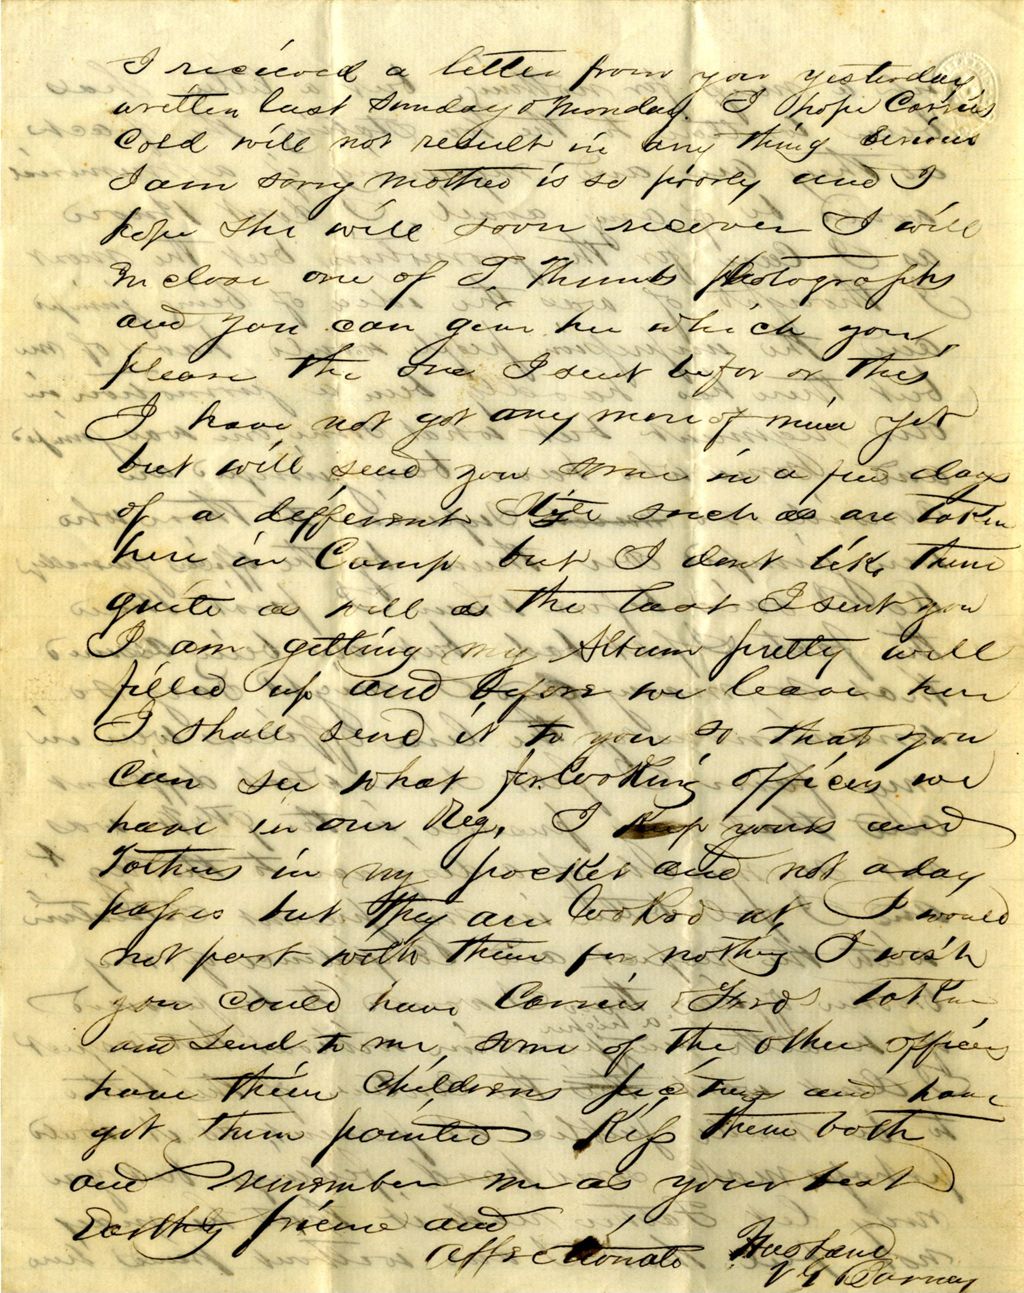 I received a letter from you yesterday
written last Sunday & Monday. I hope Carries
Cold will not result in any thing serious
I am sorry Mother is so poorly and I
hope she will soon recover I will
Inclose one of T. Thumbs Photographs
and you can give her which you
please the one I sent befor or this
I have not got any more of mine yet
but will send you some in a few days
of a different Style such as are taken
here in Camp but I dont like them
quite as well as the last I sent you
I am getting my Album pretty well
filled up and before we leave here
I shall send it to you so that you
can see what looking officers we
have in our Reg. I keep yours and
Fathers in my pocket and not a day
passes but they are looked at I would
not part with them for nothing I wish
you could have Carries & Freds taken
and send to me, some of the other officers
have their Childrens pictures and have
got them painted Kiss them both
and remember me as your best
Earthly friend and
affectionate Husband
V G Barney